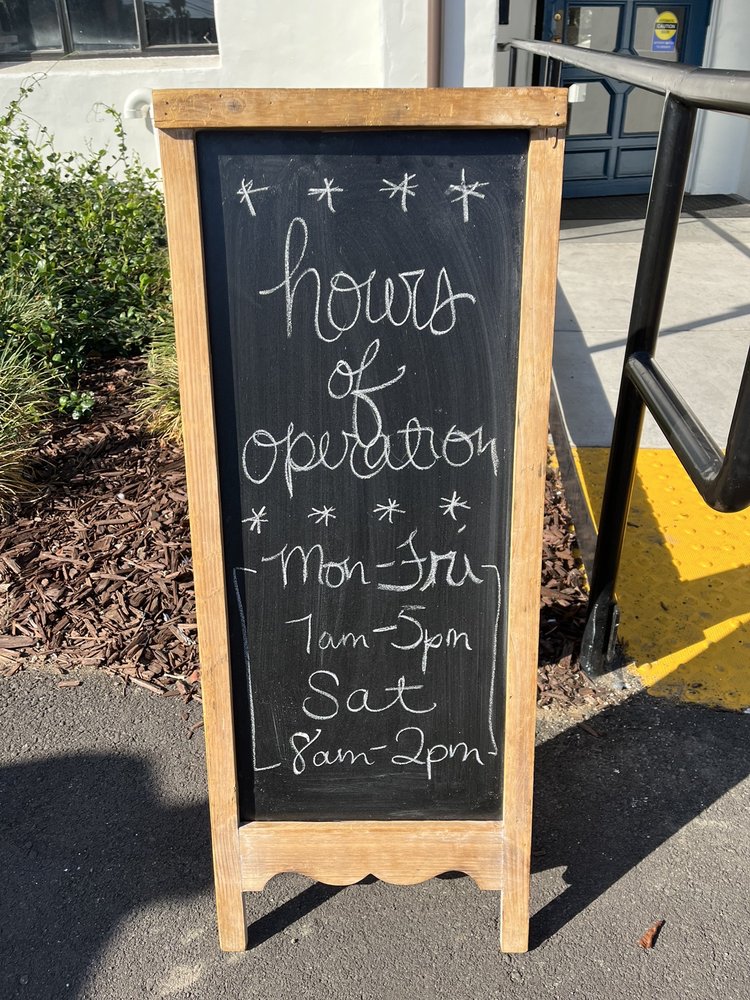 hours
of
operation
Mon-Fri
7am-5pm
Sat
8am-2pm
CAUTION